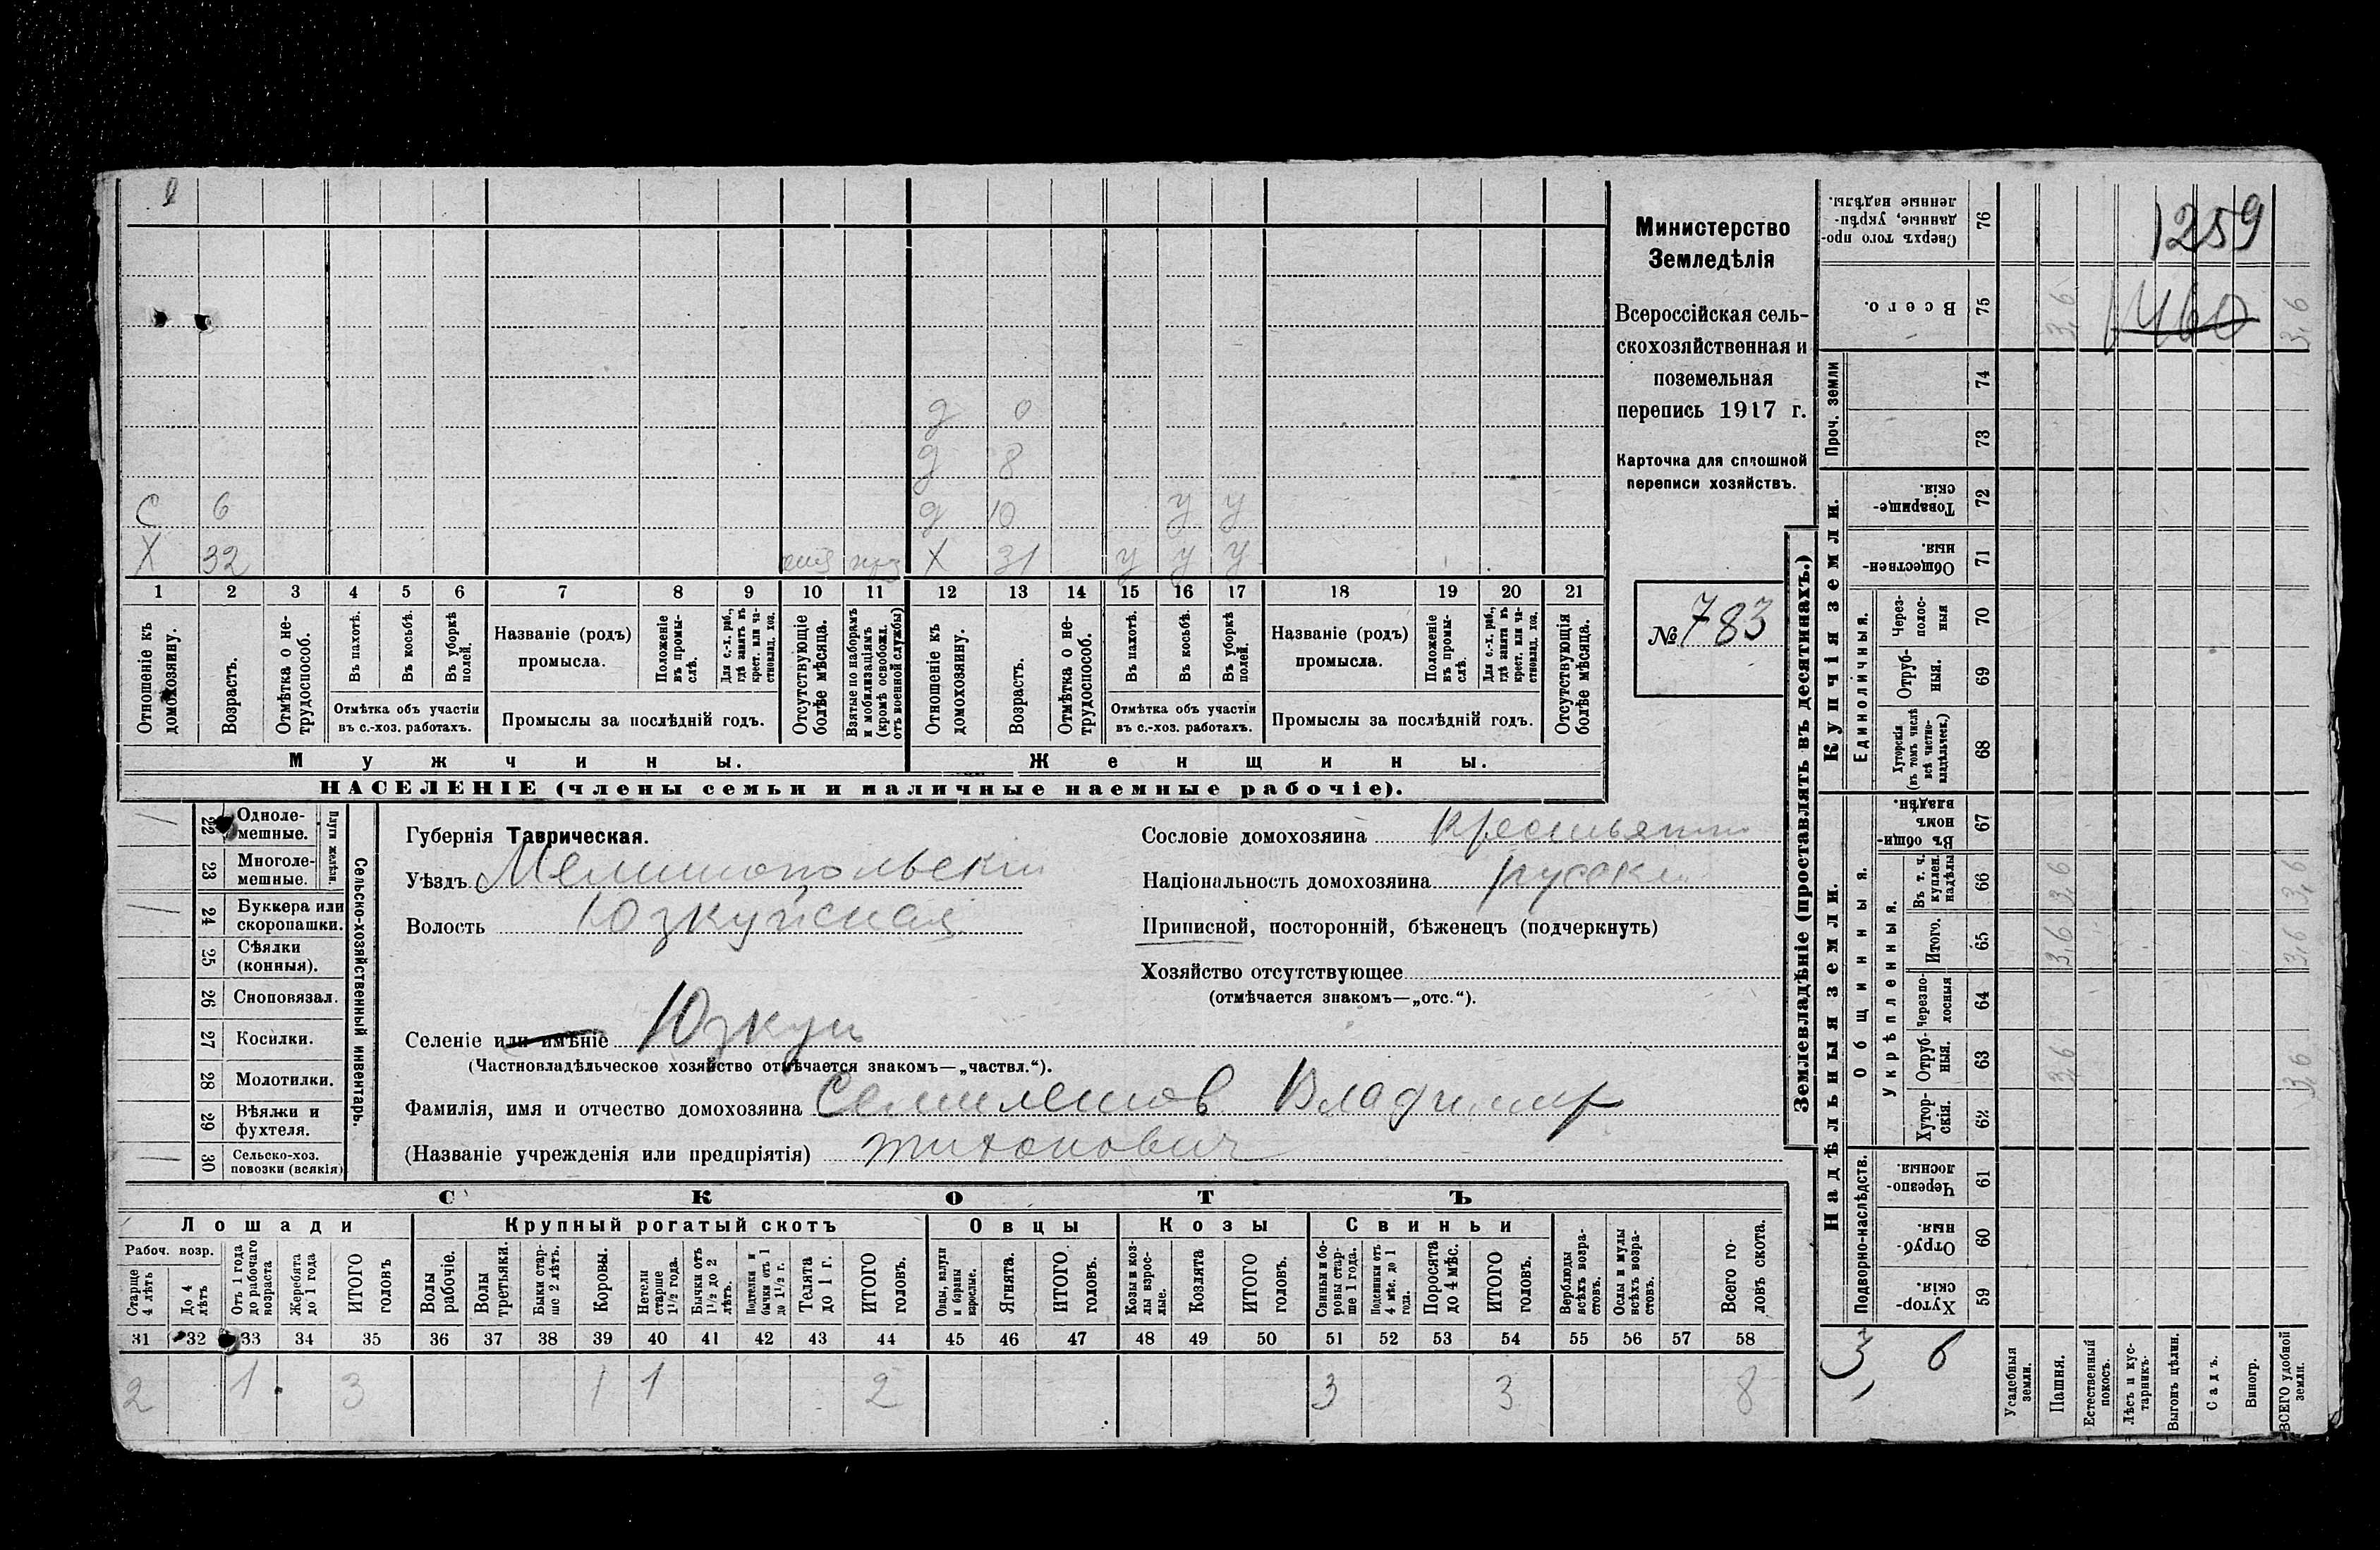 1259
1460
Министерство
Земледѣлія
Всероссійская сель-
скохозяйственная и
поземельная
перепись 1917 г.
Карточка для сплошной
переписи хозяйствъ.
№ 783
д 0
д 8
С 6 д 10 у у
Х 32 Х 31 у у у
1 2 3 4 5 6 7 8 9 10 11 12 13 14 15 16 17 18 19 20 21
Отношеніе къ домохозяину.
Возрастъ.
Отмѣтка о не-трудоспособ.
Въ пахотѣ.
Въ косьбѣ.
Въ уборкѣ полей.
Отмѣтка объ участіи
въ с.-хоз. работахъ.
Названіе (родъ)
промысла.
Положеніе въ промы-слѣ.
Для с.-х. раб., гдѣ занятъ въ крест. или ча-стновлад. хоз.
Промыслы за послѣдній годъ.
Отсутствующіе болѣе мѣсяца.
Взятые по наборамъ и мобилизаціямъ (кромѣ освобожд. отъ военной службы)
Отношеніе къ домохозяину.
Возрастъ.
Отмѣтка о не-трудоспособ.
Въ пахотѣ.
Въ косьбѣ.
Въ уборкѣ полей.
Отмѣтка объ участіи
въ с.-хоз. работахъ.
Названіе (родъ)
промысла.
Положеніе въ промы-слѣ.
Для с.-х. раб., гдѣ занята въ крест. или ча-стновлад. хоз.
Промыслы за послѣдній годъ.
Отсутствующія болѣе мѣсяца.
Мужчины. Женщины.
НАСЕЛЕНІЕ (члены семьи и наличные наемные рабочіе).
22 Одноле-мешные.
23 Многоле-мешные.
Плуги желѣзн.
24 Буккера или скоропашки.
25 Сѣялки (конныя).
26 Сноповязал.
27 Косилки.
28 Молотилки.
29 Вѣялки и фухтеля.
30 Сельско-хоз. повозки (всякія)
Сельско-хозяйственный инвентарь.
Губернія Таврическая.
Уѣздъ Мелитопольский
Волость Юзкуйская
Селеніе или имѣніе Юзкуи
(Частновладѣльческое хозяйство отмѣчается знакомъ—„частвл.“).
Фамилія, имя и отчество домохозяина Семилетов Владимир
(Названіе учрежденія или предпріятія) Тихонович
Сословіе домохозяина крестьянин
Національность домохозяина русский
Приписной, посторонній, бѣженецъ (подчеркнуть)
Хозяйство отсутствующее
(отмѣчается знакомъ—„отс.“).
СКОТЪ
Лошади Крупный рогатый скотъ Овцы Козы Свиньи
Рабоч. возр.
Старше 4 лѣтъ
До 4 лѣтъ
Отъ 1 года до рабочаго возраста
Жеребята до 1 года
ИТОГО головъ
Волы рабочіе.
Волы третьяки.
Быки стар-ше 2 лѣтъ.
Коровы.
Нетели старше 1½ года.
Бычки отъ 1½ до 2 лѣтъ.
Подтелки и бычки отъ 1 до 1½ г.
Телята до 1 г.
ИТОГО головъ.
Овцы, валухи и бараны взрослые.
Ягнята.
ИТОГО головъ.
Козы и коз-лы взрос-лые.
Козлята
ИТОГО головъ.
Свиньи и бо-ровы стар-ше 1 года.
Подсвинки отъ 4 мѣс. до 1 года.
Поросята до 4 мѣс.
ИТОГО головъ.
Верблюды всѣхъ возра-стовъ.
Ослы и мулы всѣхъ возра-стовъ.
Всего го-ловъ скота.
31 32 33 34 35 36 37 38 39 40 41 42 43 44 45 46 47 48 49 50 51 52 53 54 55 56 57 58
2 1 3 1 1 2 3 3 8
Землевладѣніе (проставлять въ десятинахъ.)
Надѣльныя земли. Купчія земли. Проч. земли
Подворно-наслѣдств.
Общинныя.
Укрѣпленныя.
Единоличныя.
Хутор-скія. 59
Отруб-ныя. 60
Черезпо-лосныя. 61
Хутор-скія. 62
Отруб-ныя. 63
Черезпо-лосныя 64
Итого. 65
Въ т. ч. куплен. надѣлы 66
Въ общин-номъ владѣн. 67
Хуторскія (въ томъ числѣ всѣ частно-владѣльческ.) 68
Отруб-ныя. 69
Через-полос-ныя 70
Обществен-ныя. 71
Товарище-скія. 72
73
74
Всего. 75
Сверхъ того про-данные, укрѣп-ленные надѣлы. 76
Усадебныя земли.
Пашня. 3,6 3,6 3,6 3,6
Естественный покосъ.
Лѣсъ и кус-тарникъ.
Выгонъ цѣлин.
Садъ.
Виногр.
ВСЕГО удобной земли. 3,6 3,6 3,6 3,6
3, 6